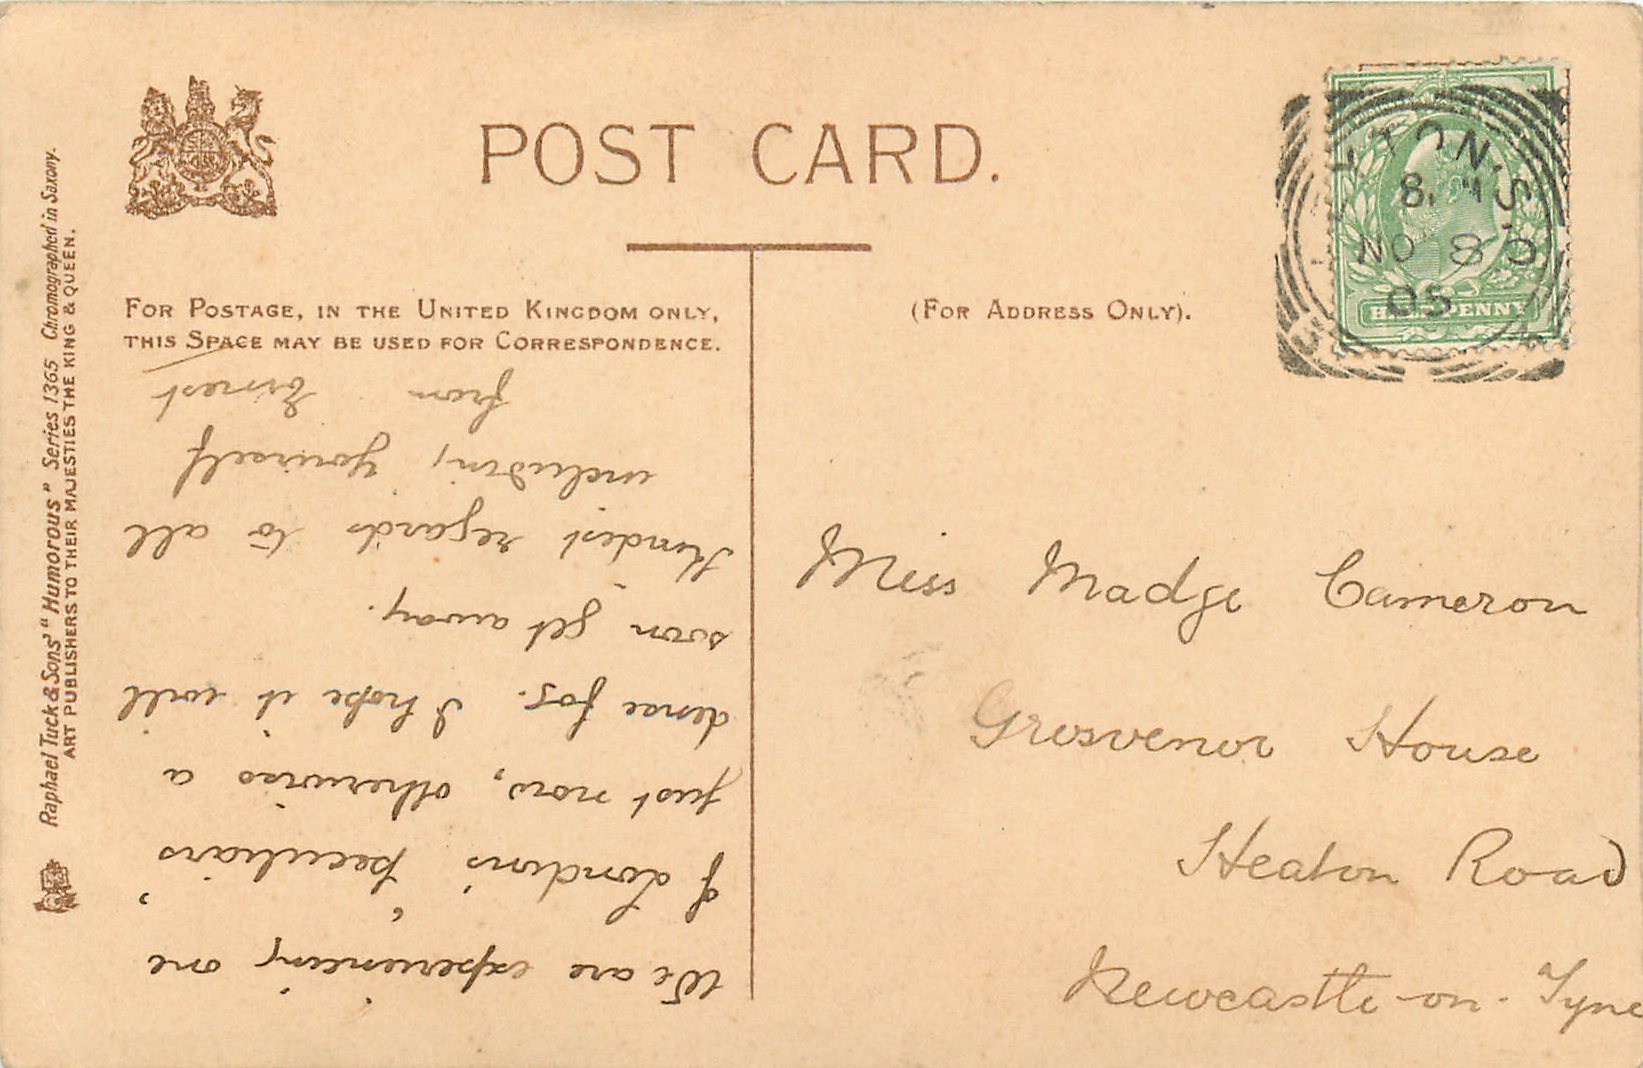 POST CARD.
FOR POSTAGE, IN THE UNITED KINGDOM ONLY,
THIS SPACE MAY BE USED FOR CORRESPONDENCE.
(FOR ADDRESS ONLY).
We are experiencing one
of London's "peculiars"
just now, otherwise a
dense fog. I hope it will
soon get away.
Kindest regards to all
including yourself
from Ernest
Miss Madge Cameron
Grosvenor House
Heaton Road
Newcastle-on-Tyne
Raphael Tuck & Sons' "Humorous" Series 1365 Chromographed in Saxony.
ART PUBLISHERS TO THEIR MAJESTIES THE KING & QUEEN.
8.
NO 8
05
HALFPENNY